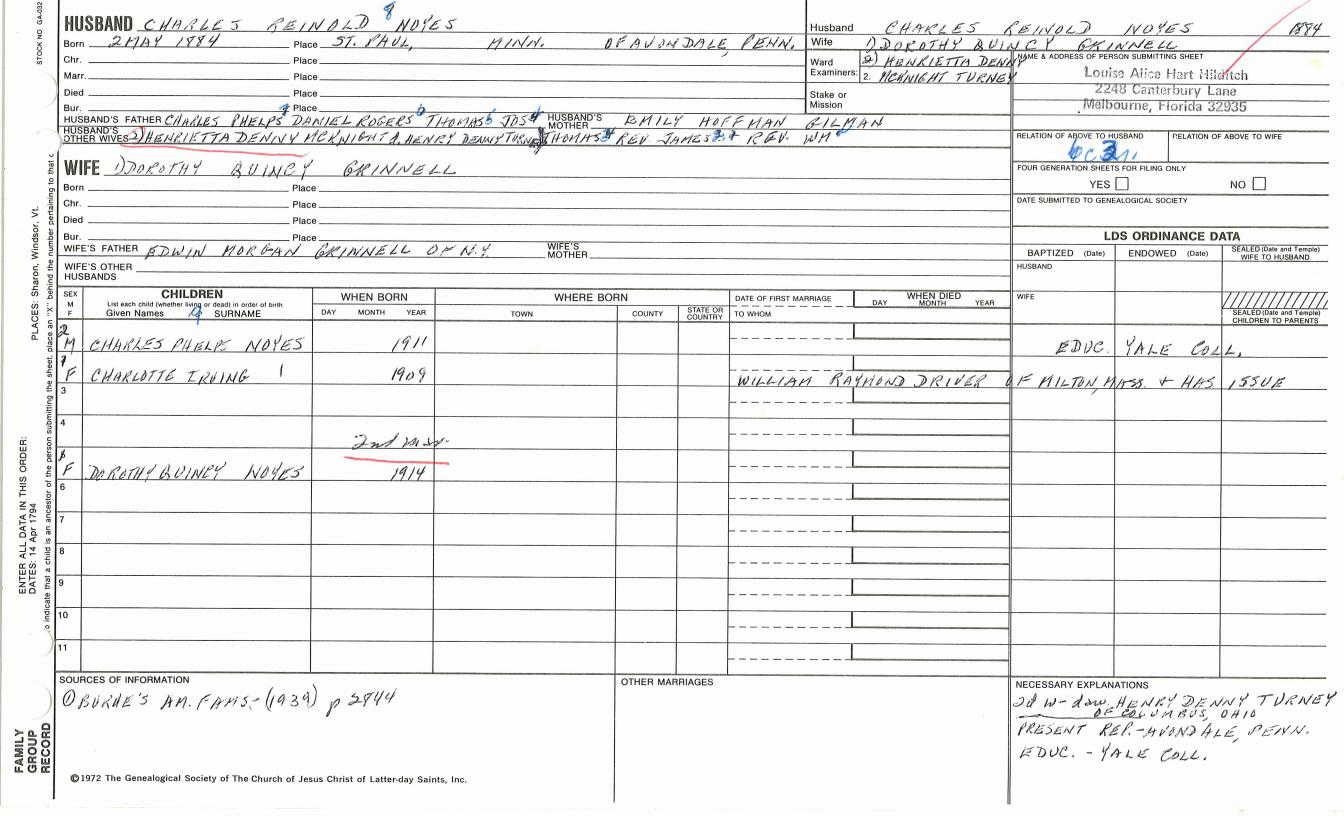 STOCK NO. GA-032
HUSBAND CHARLES REINOLD 8 NOYES
Born 2 MAY 1884 Place ST. PAUL, MINN. OF AVONDALE, PENN.
Chr. Place
Marr. Place
Died Place
Bur. Place
HUSBAND'S FATHER CHARLES PHELPS 7 DANIEL ROGERS 6 THOMAS 5 JOS 4 HUSBAND'S MOTHER EMILY HOFFMAN GILMAN
HUSBAND'S OTHER WIVES 2) HENRIETTA DENNY MCKNIGHT d. HENRY DENNY TURNEY THOMAS REV JAMES REV. WM
Husband CHARLES REINOLD NOYES 1884
Wife 1) DOROTHY QUINCY GRINNELL
Ward Examiners: 2) HENRIETTA DENNY
2. MCKNIGHT TURNEY
Stake or Mission
NAME & ADDRESS OF PERSON SUBMITTING SHEET
Louise Alice Hart Hilditch
2248 Canterbury Lane
Melbourne, Florida 32935
RELATION OF ABOVE TO HUSBAND RELATION OF ABOVE TO WIFE
6c3r.
FOUR GENERATION SHEETS FOR FILING ONLY
YES NO
DATE SUBMITTED TO GENEALOGICAL SOCIETY
WIFE 1) DOROTHY QUINCY GRINNELL
Born Place
Chr. Place
Died Place
Bur. Place
WIFE'S FATHER EDWIN MORGAN GRINNELL OF N.Y. WIFE'S MOTHER
WIFE'S OTHER HUSBANDS
LDS ORDINANCE DATA
BAPTIZED (Date) ENDOWED (Date) SEALED (Date and Temple) WIFE TO HUSBAND
HUSBAND
WIFE
SEALED (Date and Temple) CHILDREN TO PARENTS
SEX M F
CHILDREN
List each child (whether living or dead) in order of birth
Given Names 9 SURNAME
WHEN BORN
DAY MONTH YEAR
WHERE BORN
TOWN COUNTY STATE OR COUNTRY
DATE OF FIRST MARRIAGE
TO WHOM
WHEN DIED
DAY MONTH YEAR
2 M CHARLES PHELPS NOYES 1911 EDUC. YALE COLL.
1 F CHARLOTTE IRVING 1 1909 WILLIAM RAYMOND DRIVER OF MILTON, MASS. + HAS ISSUE
3
4
2nd mar.
F DOROTHY QUINCY NOYES 1914
6
7
8
9
10
11
SOURCES OF INFORMATION
① BURKE'S AM. FAMS.- (1939) p 2844
OTHER MARRIAGES
NECESSARY EXPLANATIONS
2d w- dau HENRY DENNY TURNEY
OF COLUMBUS, OHIO
PRESENT REP.-AVONDALE, PENN.
EDUC. - YALE COLL.
©1972 The Genealogical Society of The Church of Jesus Christ of Latter-day Saints, Inc.
FAMILY GROUP RECORD
ENTER ALL DATA IN THIS ORDER:
DATES: 14 Apr 1794
PLACES: Sharon, Windsor, Vt.
to indicate that a child is an ancestor of the person submitting the sheet, place an "X" behind the number pertaining to that c